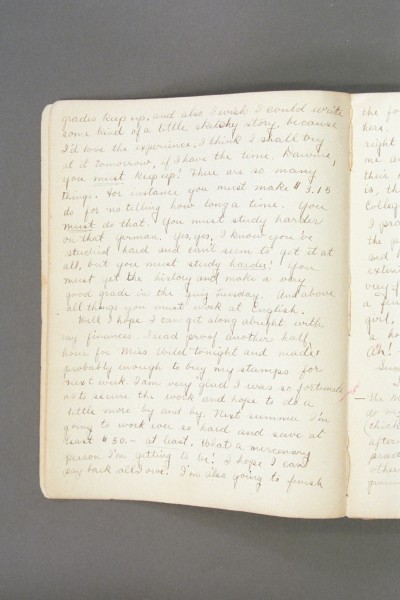 grades keep up, and also I wish I could write
some kind of a little sketchy story, because
I'd love the experience, I think I shall try
at it tomorrow, if I have the time.
you must keep up! There are so many
things. For instance you must make $3.15
do for no telling how long a time. You
must do that. You must study harder
on that german. Yes, yes, I know you've
studied hard and can't seem to get it at
all, but you must study harder! You
must get the history and make a very
good grade in the quiz Tuesday. And above
all things you must work at English.
Well I hope I can get along alright with
my finances. I read proof another half
hour for Miss tonight and made
probably enough to buy my stamps for
next week. I am very glad I was so fortunate
as to secure the work and hope to do a
little more by and by. Next summer I'm
going to work ever so hard and save at
least $50.- at least. What a mercenary
person I'm getting to be! I hope I can
pay back all I owe. I'm also going to finish
the fo
here.
right
me a
their
is, th
Colleg
I pra
the p
and
exten
very f
a fu
girl,
a ho
Oh! -